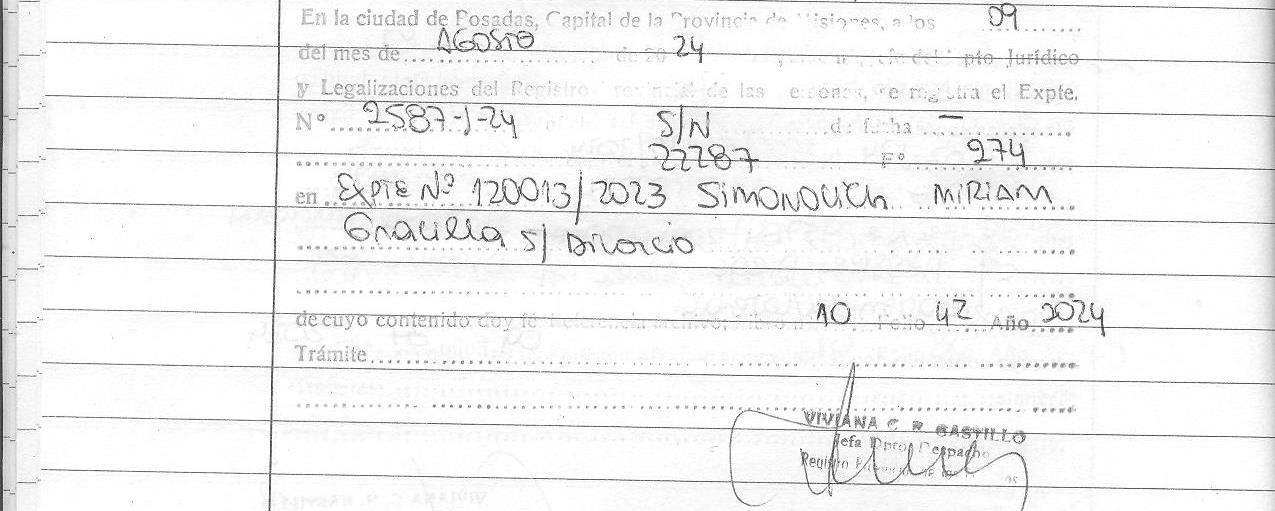 En la ciudad de Posadas, Capital de la Provincia de Misiones, a los 09
del mes de AGOSTO de 20 24 pto Jurídico
y Legalizaciones del Registro Provincial de las Personas, se registra el Expte.
Nº 2587-J-24 S/N de fecha -
22287 Fº 274
en Expte Nº 120013/2023 SIMONOVICH MIRIAM
Graciela s/ Divorcio
de cuyo contenido doy fé Referencia archivo, libro n 10 Folio 42 Año 2024
Trámite
VIVIANA C. R. CASTILLO
Jefa Dpto. Despacho
Registro